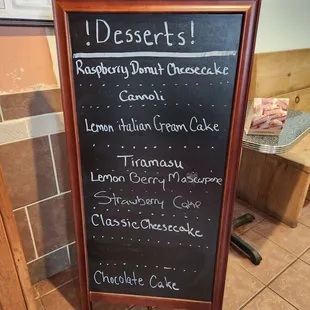 !Desserts!
Raspberry Donut Cheesecake
Cannoli
Lemon italian Cream Cake
Tiramasu
Lemon Berry Mascarpone
Strawberry Cake
Classic Cheesecake
Chocolate Cake